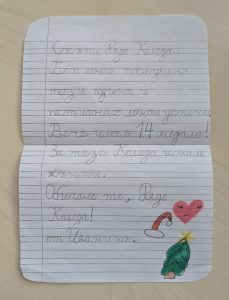 Скъпи Дядо Коледа.
Бях много послушна
тази година и
постигнах много успехи.
Вече имам 14 медала!
За тази Коледа искам
Обичам те, Дядо
Коледа!
от Иванина.